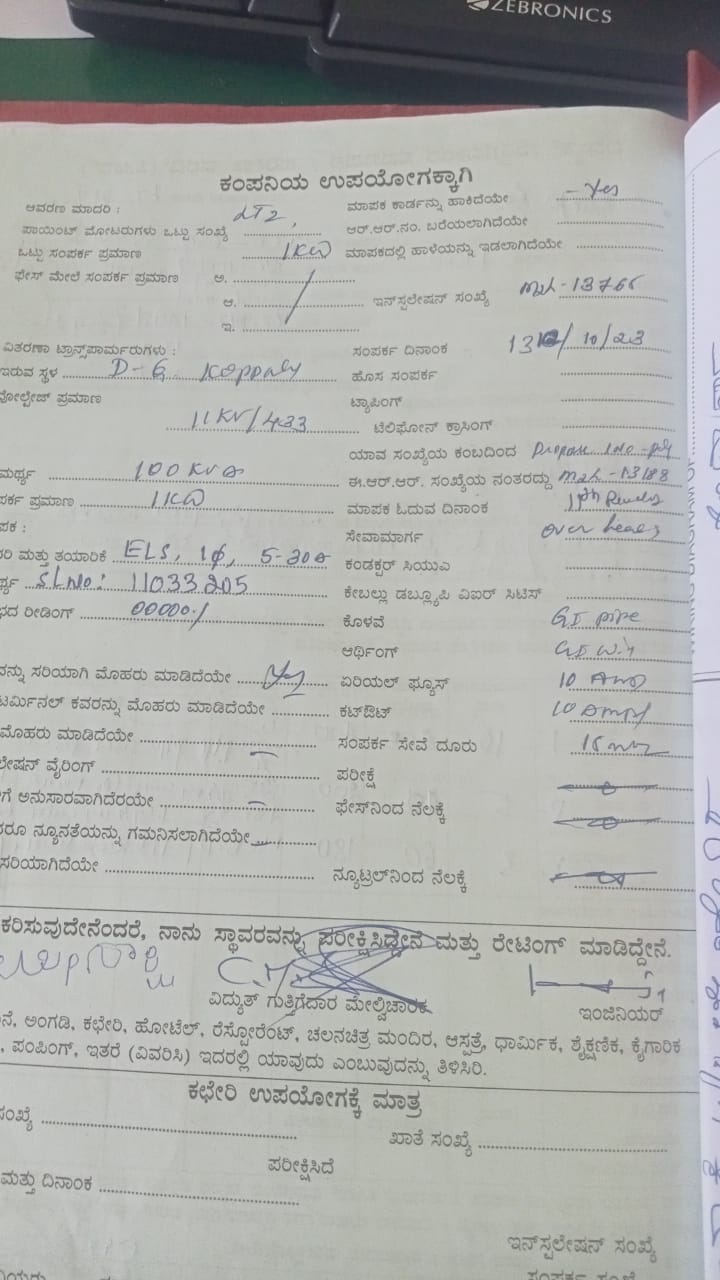 ZEBRONICS
ಕಂಪನಿಯ ಉಪಯೋಗಕ್ಕಾಗಿ
ಆವರಣ ಮಾದರಿ : LT2, ಮಾಪಕ ಕಾರ್ಡನ್ನು ಹಾಕಿದೆಯೇ - Yes
ಪಾಯಿಂಟ್ ಮೋಟರುಗಳು ಒಟ್ಟು ಸಂಖ್ಯೆ ಆರ್.ಆರ್.ನಂ. ಬರೆಯಲಾಗಿದೆಯೇ
ಒಟ್ಟು ಸಂಪರ್ಕ ಪ್ರಮಾಣ 1KW ಮಾಪಕದಲ್ಲಿ ಹಾಳೆಯನ್ನು ಇಡಲಾಗಿದೆಯೇ
ಫೇಸ್ ಮೇಲೆ ಸಂಪರ್ಕ ಪ್ರಮಾಣ ಅ.
ಆ. ಇನ್‌ಸ್ಪಲೇಷನ್ ಸಂಖ್ಯೆ
ಇ.
ವಿತರಣಾ ಟ್ರಾನ್ಸ್‌ಪಾರ್ಮರುಗಳು : ಸಂಪರ್ಕ ದಿನಾಂಕ /10/23
ಇರುವ ಸ್ಥಳ ಹೊಸ ಸಂಪರ್ಕ
ವೋಲ್ಟೇಜ್ ಪ್ರಮಾಣ ಟ್ಯಾಪಿಂಗ್
11KV/433 ಟೆಲಿಫೋನ್ ಕ್ರಾಸಿಂಗ್
ಯಾವ ಸಂಖ್ಯೆಯ ಕಂಬದಿಂದ
ಮರ್ಥ್ಯ 100 KVA ಈ.ಆರ್.ಆರ್. ಸಂಖ್ಯೆಯ ನಂತರದ್ದು
ಪರ್ಕ ಪ್ರಮಾಣ 1KW ಮಾಪಕ ಓದುವ ದಿನಾಂಕ
ಪಕ : ಸೇವಾಮಾರ್ಗ over head
ರಿ ಮತ್ತು ತಯಾರಿಕೆ ELS, 1ϕ, ಕಂಡಕ್ಟರ್ ಸಿಯುಎ
ರ್ಥ್ಯ SLNO: 11033205 ಕೇಬಲ್ಲು ಡಬ್ಲ್ಯೂಪಿ ವಿಐರ್ ಸಿಟಿಸ್
ಭದ ರೀಡಿಂಗ್ ಕೊಳವೆ GI pipe
ಆರ್ಥಿಂಗ್
ವನ್ನು ಸರಿಯಾಗಿ ಮೊಹರು ಮಾಡಿದೆಯೇ Yes ಏರಿಯಲ್ ಫ್ಯೂಸ್ 10
ಟರ್ಮಿನಲ್ ಕವರನ್ನು ಮೊಹರು ಮಾಡಿದೆಯೇ ಕಟ್‌ಔಟ್ 10 Amps
ಮೊಹರು ಮಾಡಿದೆಯೇ ಸಂಪರ್ಕ ಸೇವೆ ದೂರು
ಲೇಷನ್ ವೈರಿಂಗ್ ಪರೀಕ್ಷೆ
ಗೆ ಅನುಸಾರವಾಗಿದೆರಯೇ ಫೇಸ್‌ನಿಂದ ನೆಲಕ್ಕೆ
ದರೂ ನ್ಯೂನತೆಯನ್ನು ಗಮನಿಸಲಾಗಿದೆಯೇ
ಸರಿಯಾಗಿದೆಯೇ ನ್ಯೂಟ್ರಲ್‌ನಿಂದ ನೆಲಕ್ಕೆ
ಕರಿಸುವುದೇನೆಂದರೆ, ನಾನು ಸ್ಥಾವರವನ್ನು ಪರೀಕ್ಷಿಸಿದ್ದೇನೆ ಮತ್ತು ರೇಟಿಂಗ್ ಮಾಡಿದ್ದೇನೆ.
ವಿದ್ಯುತ್ ಗುತ್ತಿಗೆದಾರ ಮೇಲ್ವಿಚಾರಕ ಇಂಜಿನಿಯರ್
ನೆ, ಅಂಗಡಿ, ಕಛೇರಿ, ಹೋಟೆಲ್, ರೆಸ್ಟೋರೆಂಟ್, ಚಲನಚಿತ್ರ ಮಂದಿರ, ಆಸ್ಪತ್ರೆ, ಧಾರ್ಮಿಕ, ಶೈಕ್ಷಣಿಕ, ಕೈಗಾರಿಕ
, ಪಂಪಿಂಗ್, ಇತರೆ (ವಿವರಿಸಿ) ಇದರಲ್ಲಿ ಯಾವುದು ಎಂಬುವುದನ್ನು ತಿಳಿಸಿರಿ.
ಕಛೇರಿ ಉಪಯೋಗಕ್ಕೆ ಮಾತ್ರ
ಸಂಖ್ಯೆ ಖಾತೆ ಸಂಖ್ಯೆ
ಪರೀಕ್ಷಿಸಿದೆ
ಮತ್ತು ದಿನಾಂಕ
ಇನ್‌ಸ್ಪಲೇಷನ್ ಸಂಖ್ಯೆ